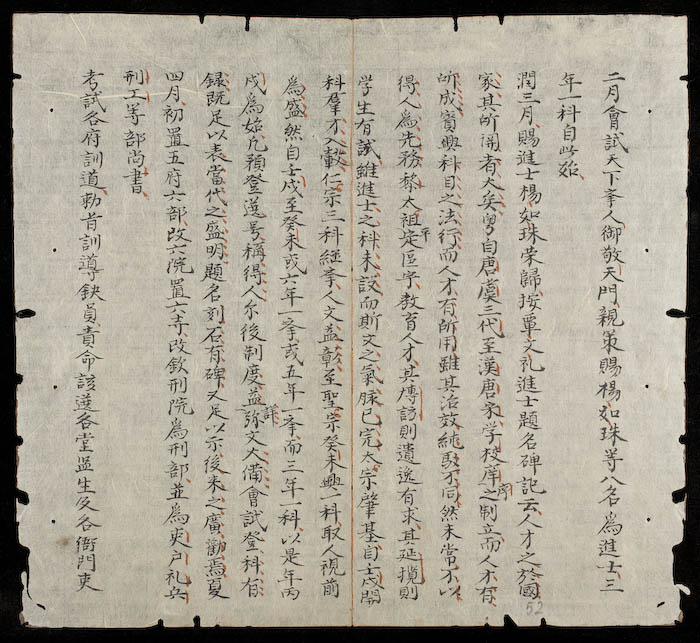 二月會試天下李人御敬天門親策賜楊如珠等八名為進士三
年一科自此始
潤三月賜進士楊如珠榮歸按覃文礼進士題名碑記云人才之於國
家其所関者大矣粤自唐虞三代至漢唐家学校庠序之制立而人才有
所成賓興科目之法行而人才有所用雖其治效純駁不同然未嘗不以
得人為先務黎太祖平定區宇教育人才其博訪則遺逸有求其延攬則
学生有試雖進士之科未設而斯文之氣脉已完太宗肇基自壬戌開
科羣才入彀仁宗三科継李人文益彰至聖宗癸未興一科取人視前
為盛然自壬戌至癸未或六年一李或五年一李而三年一科以是年丙
戌為始凢預登選号稱得人尔後制度益詳弥文大備會試登科有
録既足以表當代之盛明題名刻石有碑又足以示後来之廣勸焉夏
四月初置五府六部改六院置六寺改欽刑院為刑部並為吏户礼兵
刑工等部尚書
考試各府訓道勅旨訓導缺員責命該選各堂监生及各衙門吏
52